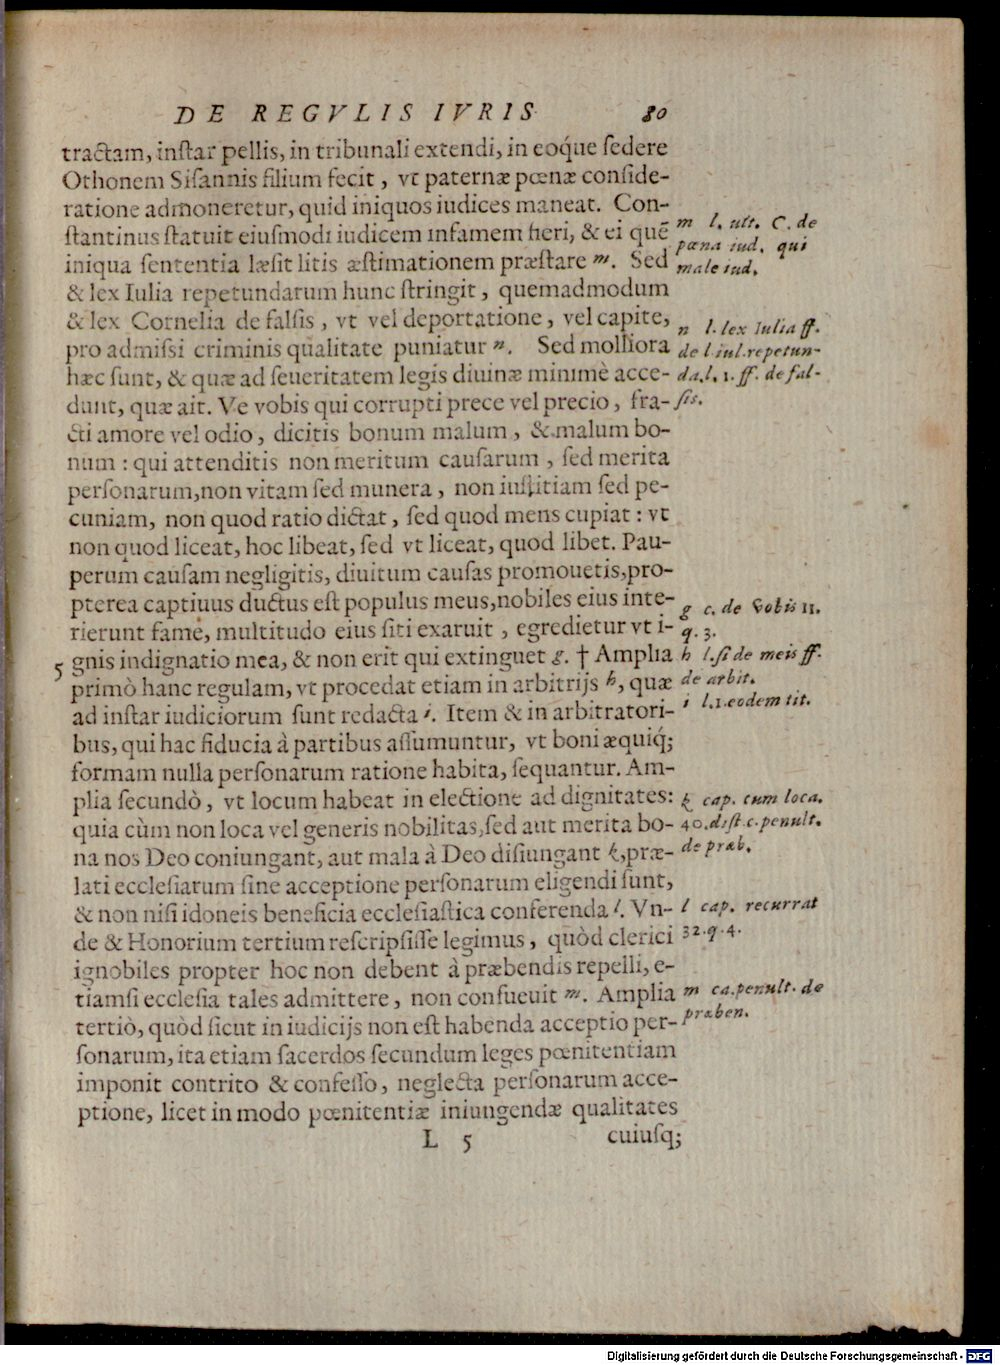 DE REGVLIS IVRIS 80
tractam, inſtar pellis, in tribunali extendi, in eoq́ue ſedere
Othonem Siſannis filium fecit, vt paternæ pœnæ conſide-
ratione admoneretur, quid iniquos iudices maneat. Con-
ſtantinus ſtatuit eiuſmodi iudicem infamem fieri, & ei quē
iniqua ſententia læſit litis æſtimationem præſtare m. Sed
& lex Iulia repetundarum hunc ſtringit, quemadmodum
& lex Cornelia de falſis, vt vel deportatione, vel capite,
pro admiſsi criminis qualitate puniatur n. Sed molliora
hæc ſunt, & quæ ad ſeueritatem legis diuinæ minimè acce-
dunt, quæ ait. Ve vobis qui corrupti prece vel precio, fra-
cti amore vel odio, dicitis bonum malum, & malum bo-
num : qui attenditis non meritum cauſarum, ſed merita
perſonarum, non vitam ſed munera, non iuſtitiam ſed pe-
cuniam, non quod ratio dictat, ſed quod mens cupiat : vt
non quod liceat, hoc libeat, ſed vt liceat, quod libet. Pau-
perum cauſam negligitis, diuitum cauſas promouetis, pro-
pterea captiuus ductus eſt populus meus, nobiles eius inte-
rierunt fame, multitudo eius ſiti exaruit, egredietur vt i-
5 gnis indignatio mea, & non erit qui extinguet g. † Amplia
primò hanc regulam, vt procedat etiam in arbitrijs h, quæ
ad inſtar iudiciorum ſunt redacta i. Item & in arbitratori-
bus, qui hac fiducia à partibus aſſumuntur, vt boni æquiq́;
formam nulla perſonarum ratione habita, ſequantur. Am-
plia ſecundò, vt locum habeat in electione ad dignitates:
quia cùm non loca vel generis nobilitas, ſed aut merita bo-
na nos Deo coniungant, aut mala à Deo diſiungant k, præ-
lati eccleſiarum ſine acceptione perſonarum eligendi ſunt,
& non niſi idoneis beneficia eccleſiaſtica conferenda l. Vn-
de & Honorium tertium reſcripſiſſe legimus, quòd clerici
ignobiles propter hoc non debent à præbendis repelli, e-
tiamſi eccleſia tales admittere, non conſueuit m. Amplia
tertiò, quòd ſicut in iudicijs non eſt habenda acceptio per-
ſonarum, ita etiam ſacerdos ſecundum leges pœnitentiam
imponit contrito & confeſſo, neglecta perſonarum acce-
ptione, licet in modo pœnitentiæ iniungendæ qualitates
L 5 cuiuſq;
m l. ult. C. de
pœna iud. qui
male iud.
n l. lex Iulia ff.
de l. iul. repetun-
da. l. 1. ff. de fal-
ſis.
g c. de vobis 11.
q. 3.
h l. ſi de meis ff.
de arbit.
i l. 1. eodem tit.
k cap. cum loca.
40. diſt. c. penult.
de præb.
l cap. recurrat
32. q. 4.
m ca. penult. de
præben.
Digitalisierung gefördert durch die Deutsche Forschungsgemeinschaft - DFG